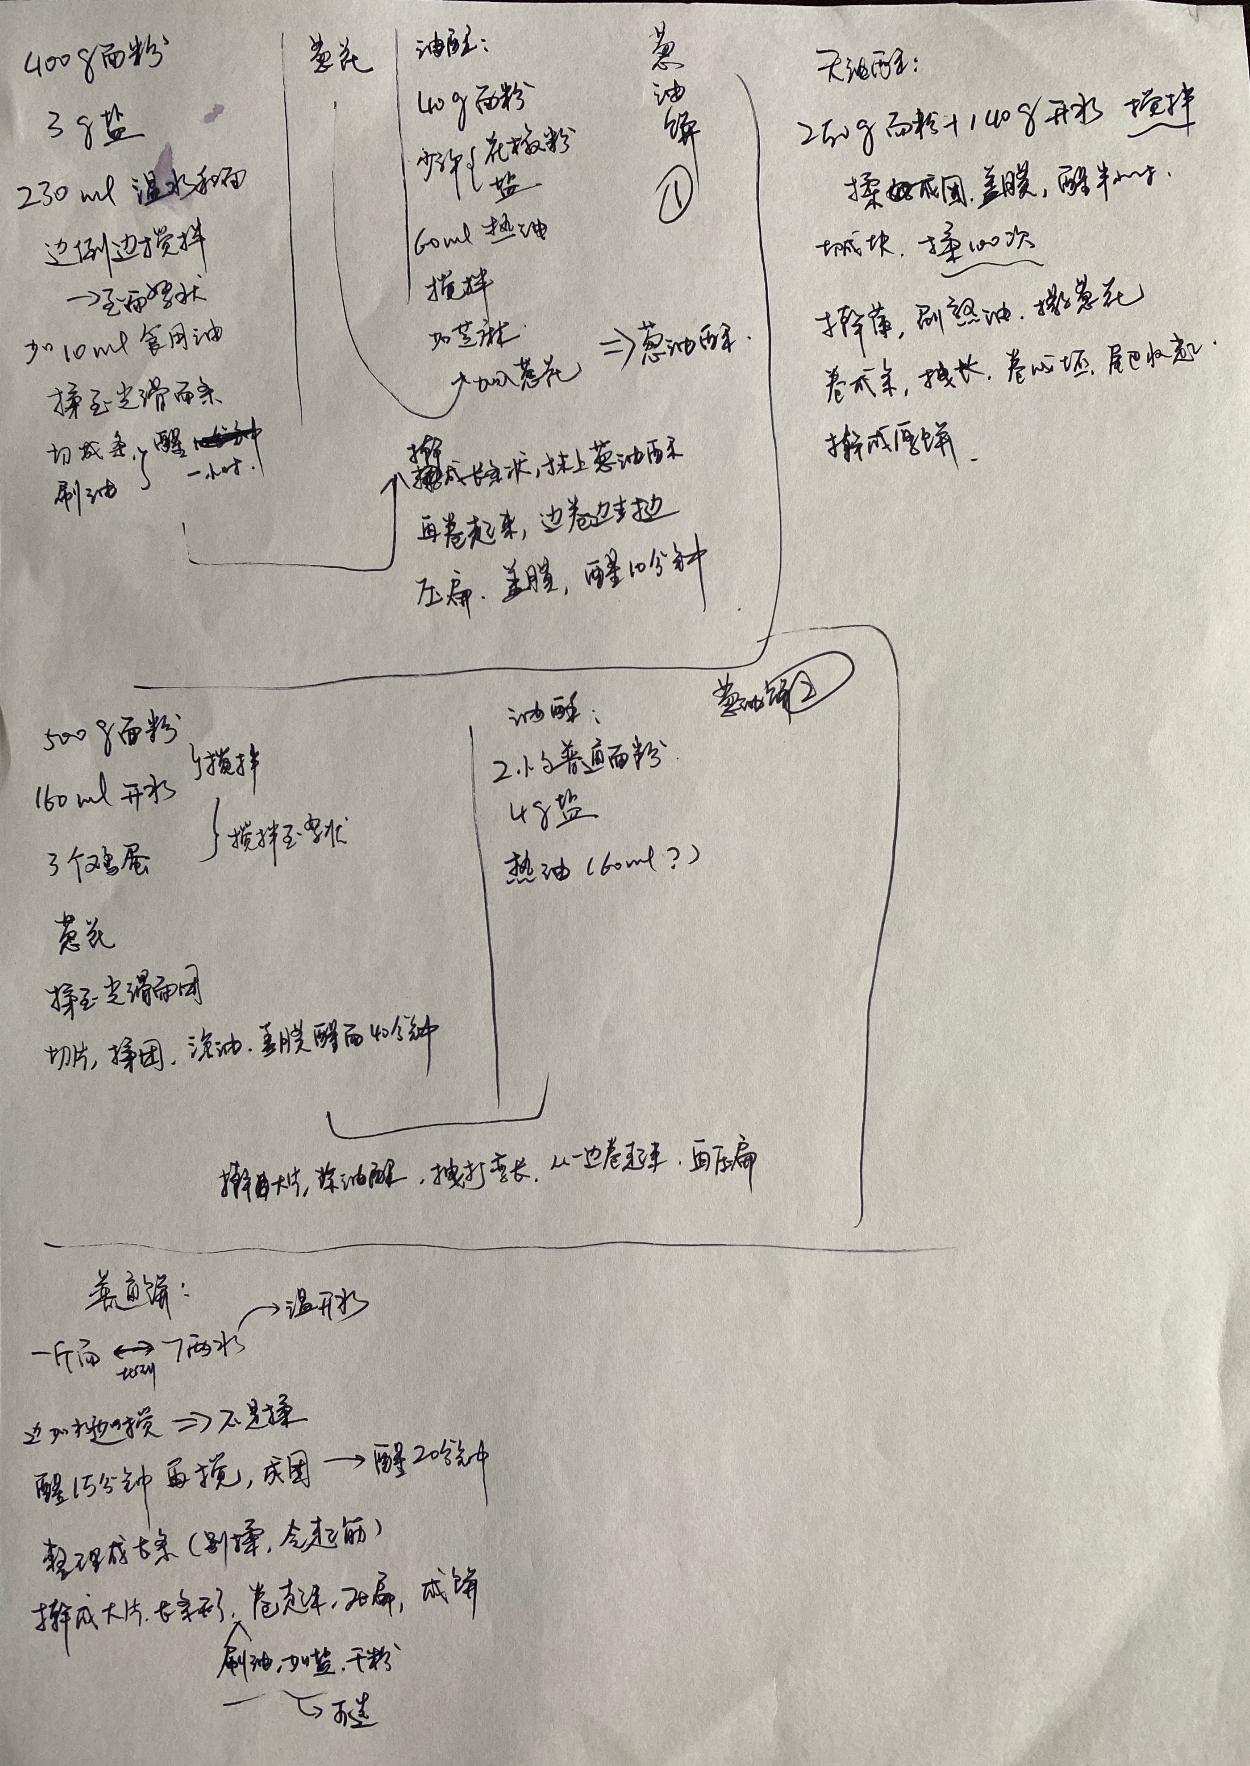 葱油饼
①
400g面粉
3g盐
230ml 温水和面
边倒边搅拌
→至面絮状
加10ml食用油
揉至光滑面条
切成条,
刷油
} 醒
一小时.
葱花
油酥:
40g面粉
少许{花椒粉
盐
60ml热油
搅拌
加芝麻.
加入葱花
⇒葱油酥.
擀成长条状,抹上葱油酥
再卷起来,边卷边拉边
压扁.盖膜,醒10分钟
无油酥:
250g面粉+140g开水 搅拌
揉成团.盖膜,醒半小时.
切成块.揉100次
擀薄,刷熟油.撒葱花
卷成条,拽长.卷成坯.尾巴收起.
擀成厚饼.
葱油饼②
500g面粉
160ml开水
}搅拌
3个鸡蛋
}搅拌至絮状
葱花
揉至光滑面团
切片,揉团.泡油.盖膜醒面40分钟
油酥:
2.1勺普通面粉
4g盐
热油(60ml?)
擀大片,抹油酥.拽打变长.从一边卷起来.再压扁
普通饼:
一斤面 ↔ 7两水 →温开水
比例
边加水边搅 ⇒不是揉
醒15分钟再搅,成团→醒20分钟
整理成长条(别揉,会起筋)
擀成大片.长条形.卷起来.压扁,成饼
刷油.加盐.干粉
↳可选